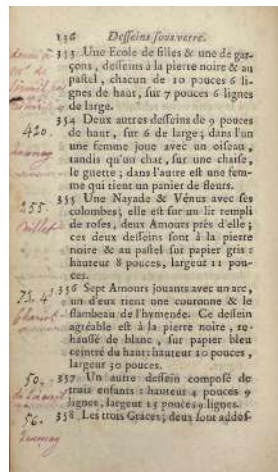 136 Desseins sous verre.
353 Une Ecole de filles & une de gar-
çons, desseins à la pierre noire & au
pastel, chacun de 10 pouces 6 li-
gnes de haut, sur 7 pouces 6 lignes
de large.
420.
354 Deux autres desseins de 9 pouces
de haut, sur 6 de large; dans l'un
une femme joue avec un oiseau,
tandis qu'un chat, sur une chaise,
le guette; dans l'autre est une fem-
me qui tient un panier de fleurs.
255
355 Une Nayade & Vénus avec ses
colombes; elle est sur un lit rempli
de roses, deux Amours près d'elle;
ces deux desseins sont à la pierre
noire & au pastel sur papier gris:
hauteur 8 pouces, largeur 11 pou-
ces.
356 Sept Amours jouants avec un arc,
un d'eux tient une couronne & le
flambeau de l'hymenée. Ce dessein
agréable est à la pierre noire, re-
haussé de blanc, sur papier bleu
ceintré du haut: hauteur 10 pouces,
largeur 30 pouces.
50.
357 Un autre dessein composé de
trois enfants: hauteur 4 pouces 9
lignes, largeur 13 pouces 9 lignes.
56.
358 Les trois Graces; deux sont addos-